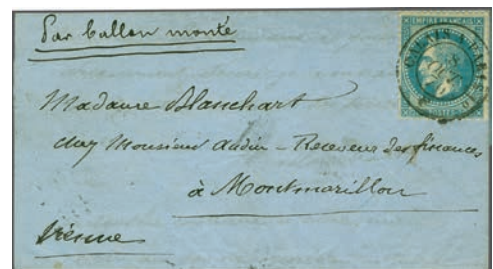 Par ballon monté
EMPIRE FRANÇAIS
Madame Blanchart
chez Monsieur Audin - Receveur des finances
à Montmorillon
Vienne